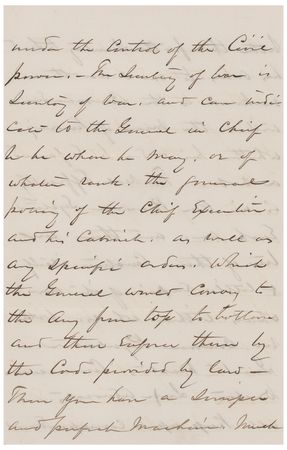 under the Control of the Civil
power. - The Secretary of War is
Secretary of War. and can indi
cate to the General in Chief
be he whom he may. or of
whatever rank. the general
policy of the Chief Executive
and his Cabinet. as well as
any specific orders. Which
the General would convey to
the Army from top to bottom
and then enforce them by
the Code provided by law -
Then you have a Simple
and perfect Machine. Much